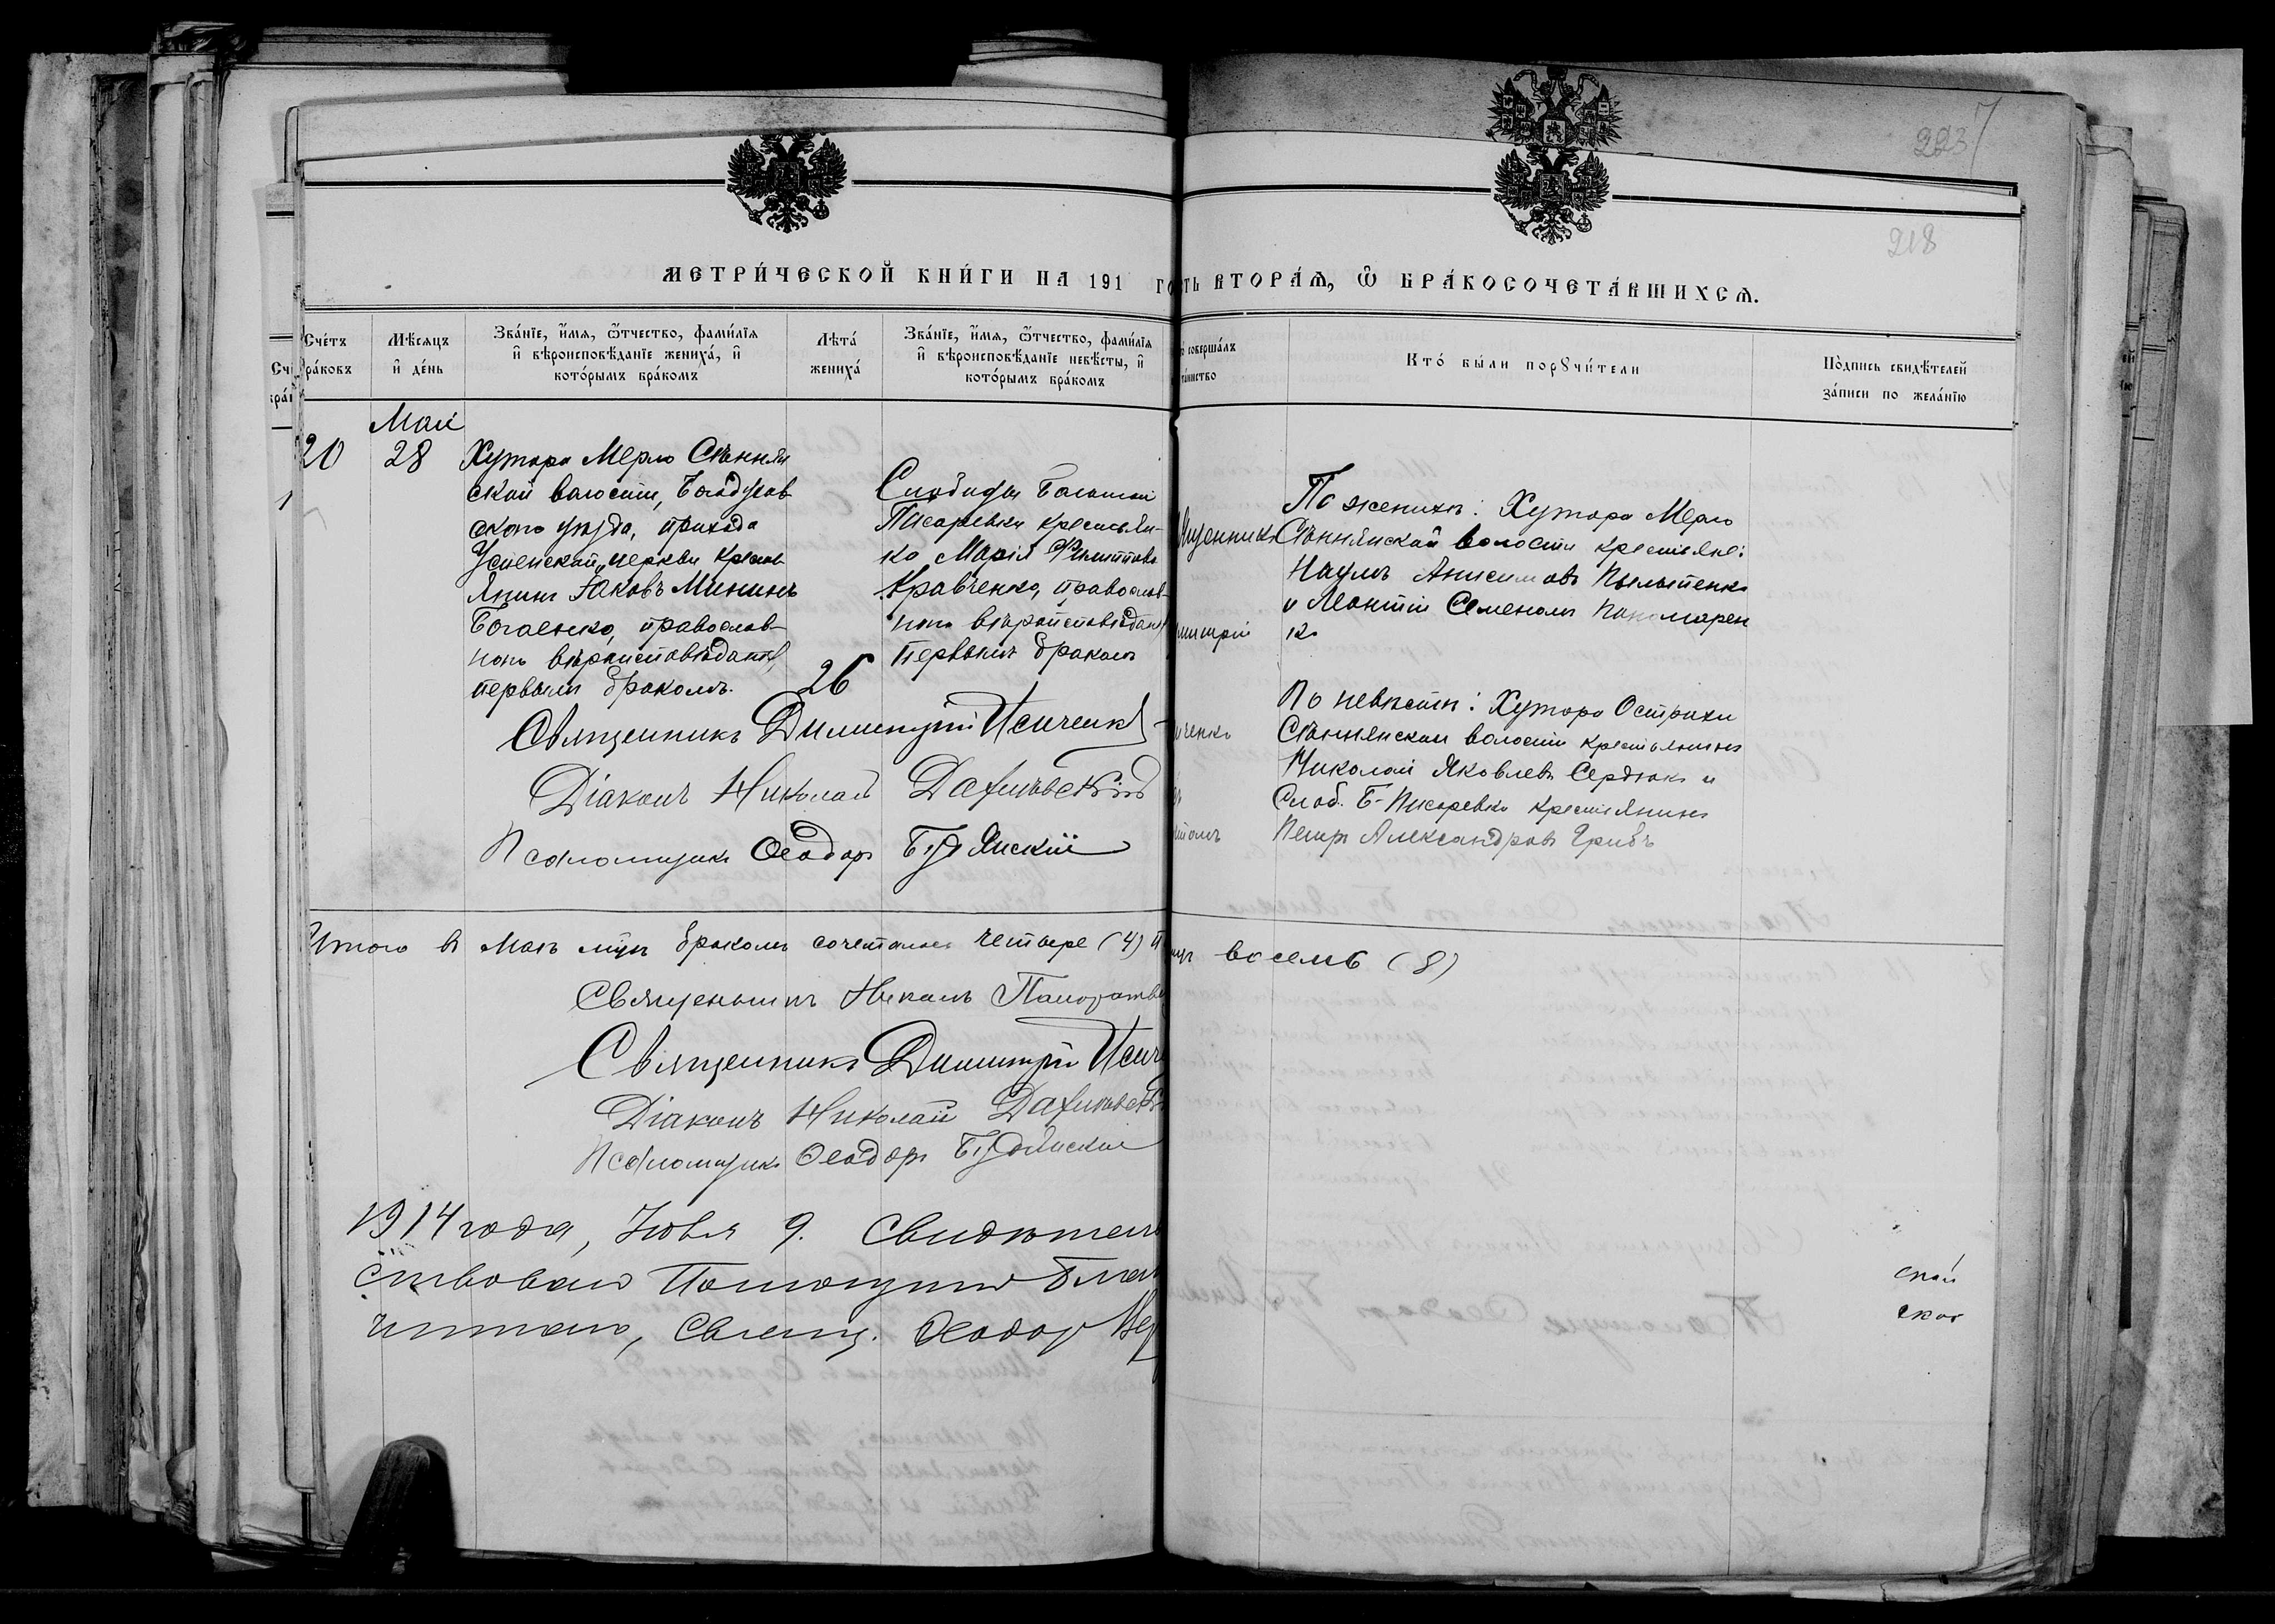 223
7
218
МЕТРИ́ЧЕСКОЙ КНИ́ГИ НА 191 ГО
СТЬ ВТОРА́Ѧ, Ѽ БРА́КОСОЧЕТА́ВШИХСѦ.
Сче́тъ
браковъ
Мѣсѧцъ
и҆ де́нь
Зва́нїе, и҆́мѧ, ѻ҆́тчество, фами́лїѧ
и҆ вѣроисповѣ́данїе жениха́, и҆
кото́рымъ бра́комъ
Лѣта́
жениха́
Зва́нїе, и҆́мѧ, ѻ҆́тчество, фами́лїѧ
и҆ вѣроисповѣ́данїе невѣ́сты, и҆
кото́рымъ бра́комъ
соверша́лъ
таинство
Кто́ бы́ли порꙋчи́тели
По́дпись свидѣ́телей
за́писи по жела́нїю
Май
20
28
Хутора Мерло Сѣннян
ской волости, Богодухов
скаго уѣзда, прихода
Успенской церкви кресть
янинъ Іаковъ Мининъ
Богаенко, православ-
наго вѣроисповѣданія,
первымъ бракомъ.
26
Слободы Богатой
Писаревки крестьян-
ка Марія Филиппова
Кравченко, православ-
наго вѣроисповѣданія
первымъ бракомъ
По женихѣ: Хутора Мерло
Сѣннянской волости крестьяне:
Наумъ Анисимовъ
и Леонтій Семеновъ Пономарен
ко
По невѣстѣ: Хутора
Сѣннянской волости крестьянинъ
Николай Яковлевъ Сердюкъ и
Слоб. Б-Писаревки крестьянинъ
Петръ Александровъ Грибъ
Священникъ Димитрій
Діаконъ Николай
Псаломщикъ Ѳеодоръ Будянскій
Итого въ Маѣ мцѣ бракомъ сочеталось четыре (4) п
восемь (8)
Священникъ
Священникъ Димитрій
Діаконъ Николай
Псаломщикъ Ѳеодоръ Будянскій
1914 года, Іюля 9. Свидѣтель
ствовалъ Помощникъ Благо
чиннаго, Свящ. Ѳеодоръ
ской
ской